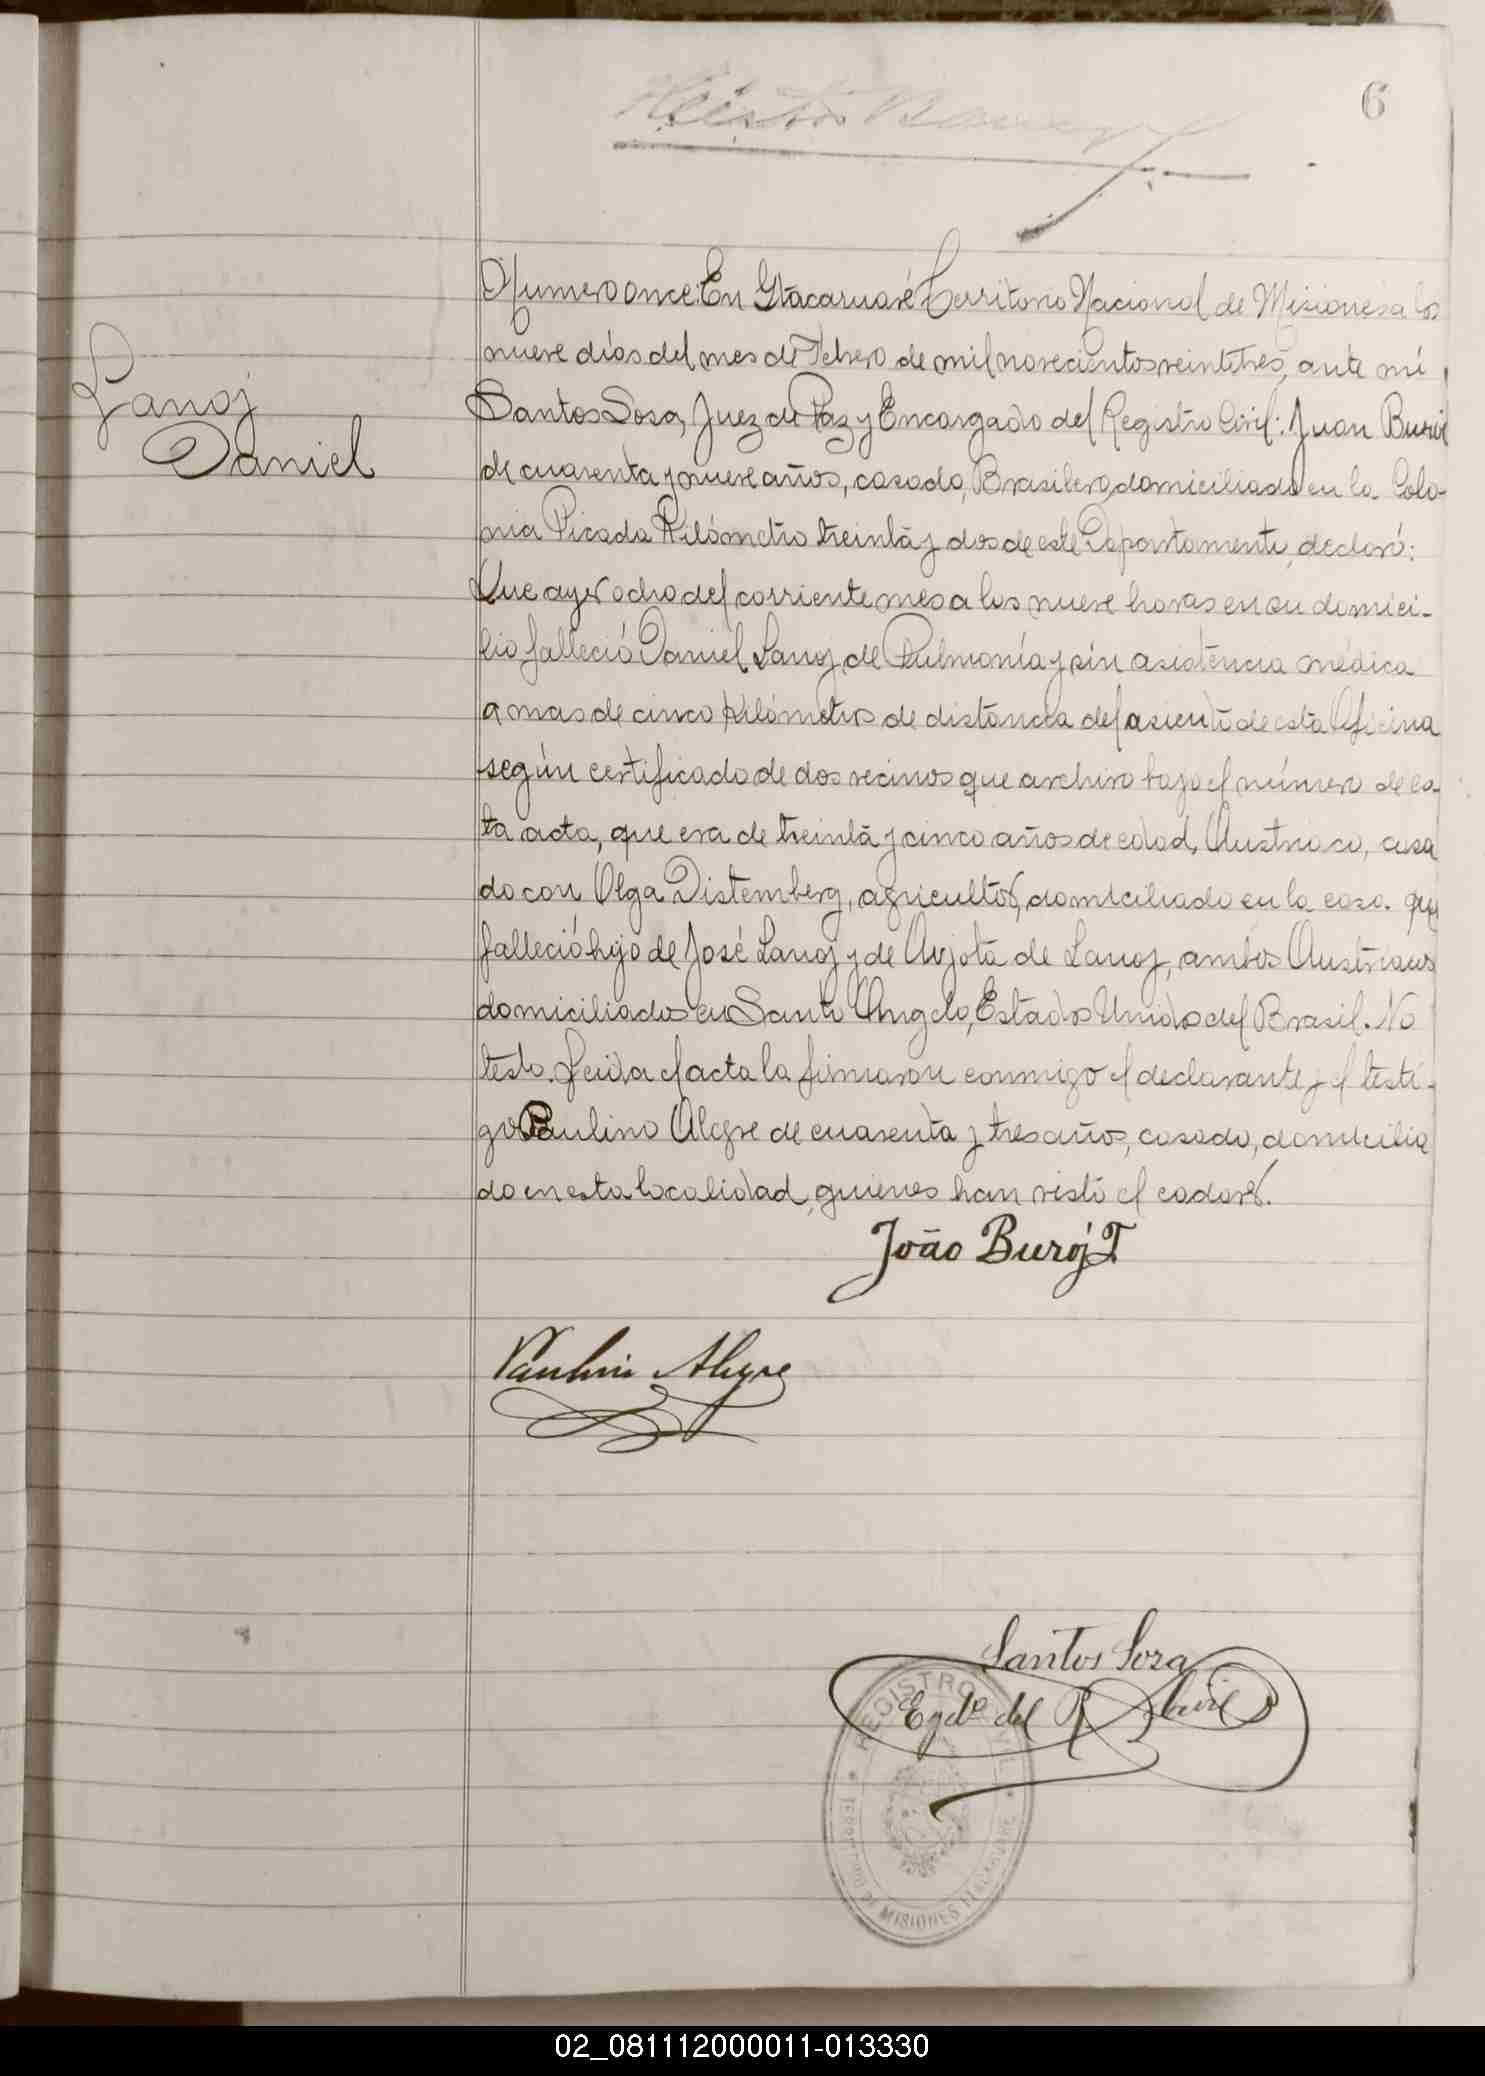 6
Numero once: En Ytacaruaré Territorio Nacional de Misiones a los
nueve días del mes de Febrero de mil novecientos veintitres, ante mí
Santos Sosa, Juez de Paz y Encargado del Registro Civil: Juan Buroj
Lanoj
Daniel
de cuarenta y nueve años, casado, Brasilero, domiciliado en la Colo-
nia Picada Kilómetro treinta y dos de este Departamento, declaró:
Que ayer ocho del corriente mes a las nueve horas en su domici-
lio falleció Daniel Lanoj, de Pulmonía y sin asistencia médica
a mas de cinco kilómetros de distancia del asiento de esta Oficina
según certificado de dos vecinos que archivo bajo el número de es-
ta acta, que era de treinta y cinco años de edad, Austriaco, casa
do con Olga Distemberg, agricultor, domiciliado en la casa que
falleció hijo de José Lanoj y de de Lanoj, ambos Austriacos
domiciliados en Santo Angelo, Estados Unidos del Brasil. No
testo. Leida el acta la firmaron conmigo el declarante y el testi-
go Paulino Alegre de cuarenta y tres años, casado, domicilia
do en esta localidad, quienes han visto el cadaver.
João Buroj
Paulino Alegre
Santos Soza
Egdo del R Civil
REGISTRO CIVIL
MISIONES
02_081112000011-013330